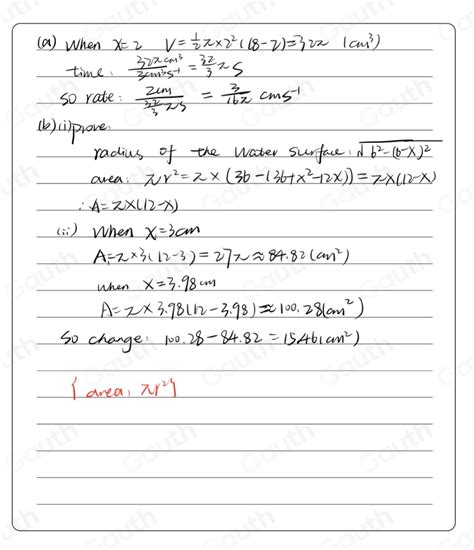 (a) When x=2 V=½πx2²(18-2)=32π (cm³)
time: 32πcm³/3cm³s⁻¹ = 32/3 π s
so rate: 2cm/(32/3 πs) = 3/16π cms⁻¹
(b)(i) prove:
radius of the water surface: √6²-(6-x)²
area: πr²=π×(36-(36+x²-12x))=πx(12-x)
∴A=πx(12-x)
(ii) When x=3cm
A=π×3(12-3)=27π≈84.82(cm²)
when x=3.98cm
A=π×3.98(12-3.98)≈100.28(cm²)
So change: 100.28-84.82=15.46(cm²)
{area: πr²}
Gauth